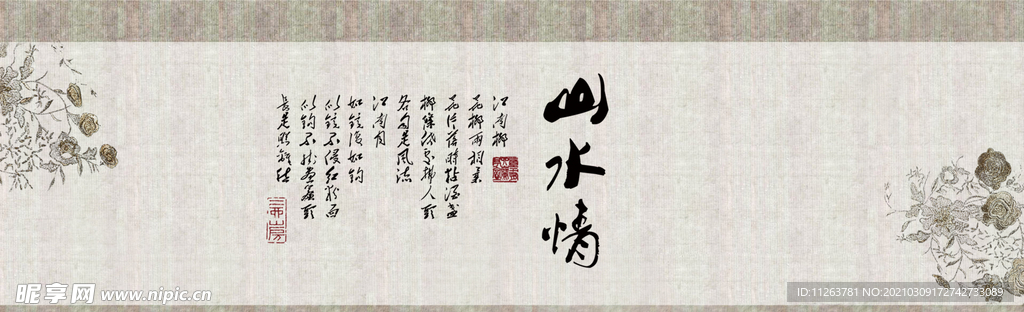 山水情
江南柳
花柳两相柔
花片落时粘酒盏
柳条低处拂人头
各自是风流
江南月
如镜复如钩
似镜不侵红粉面
似钩不挂画帘头
长是照离愁
昵享网 www.nipic.cn
ID:11263781 NO:20210309172742733089